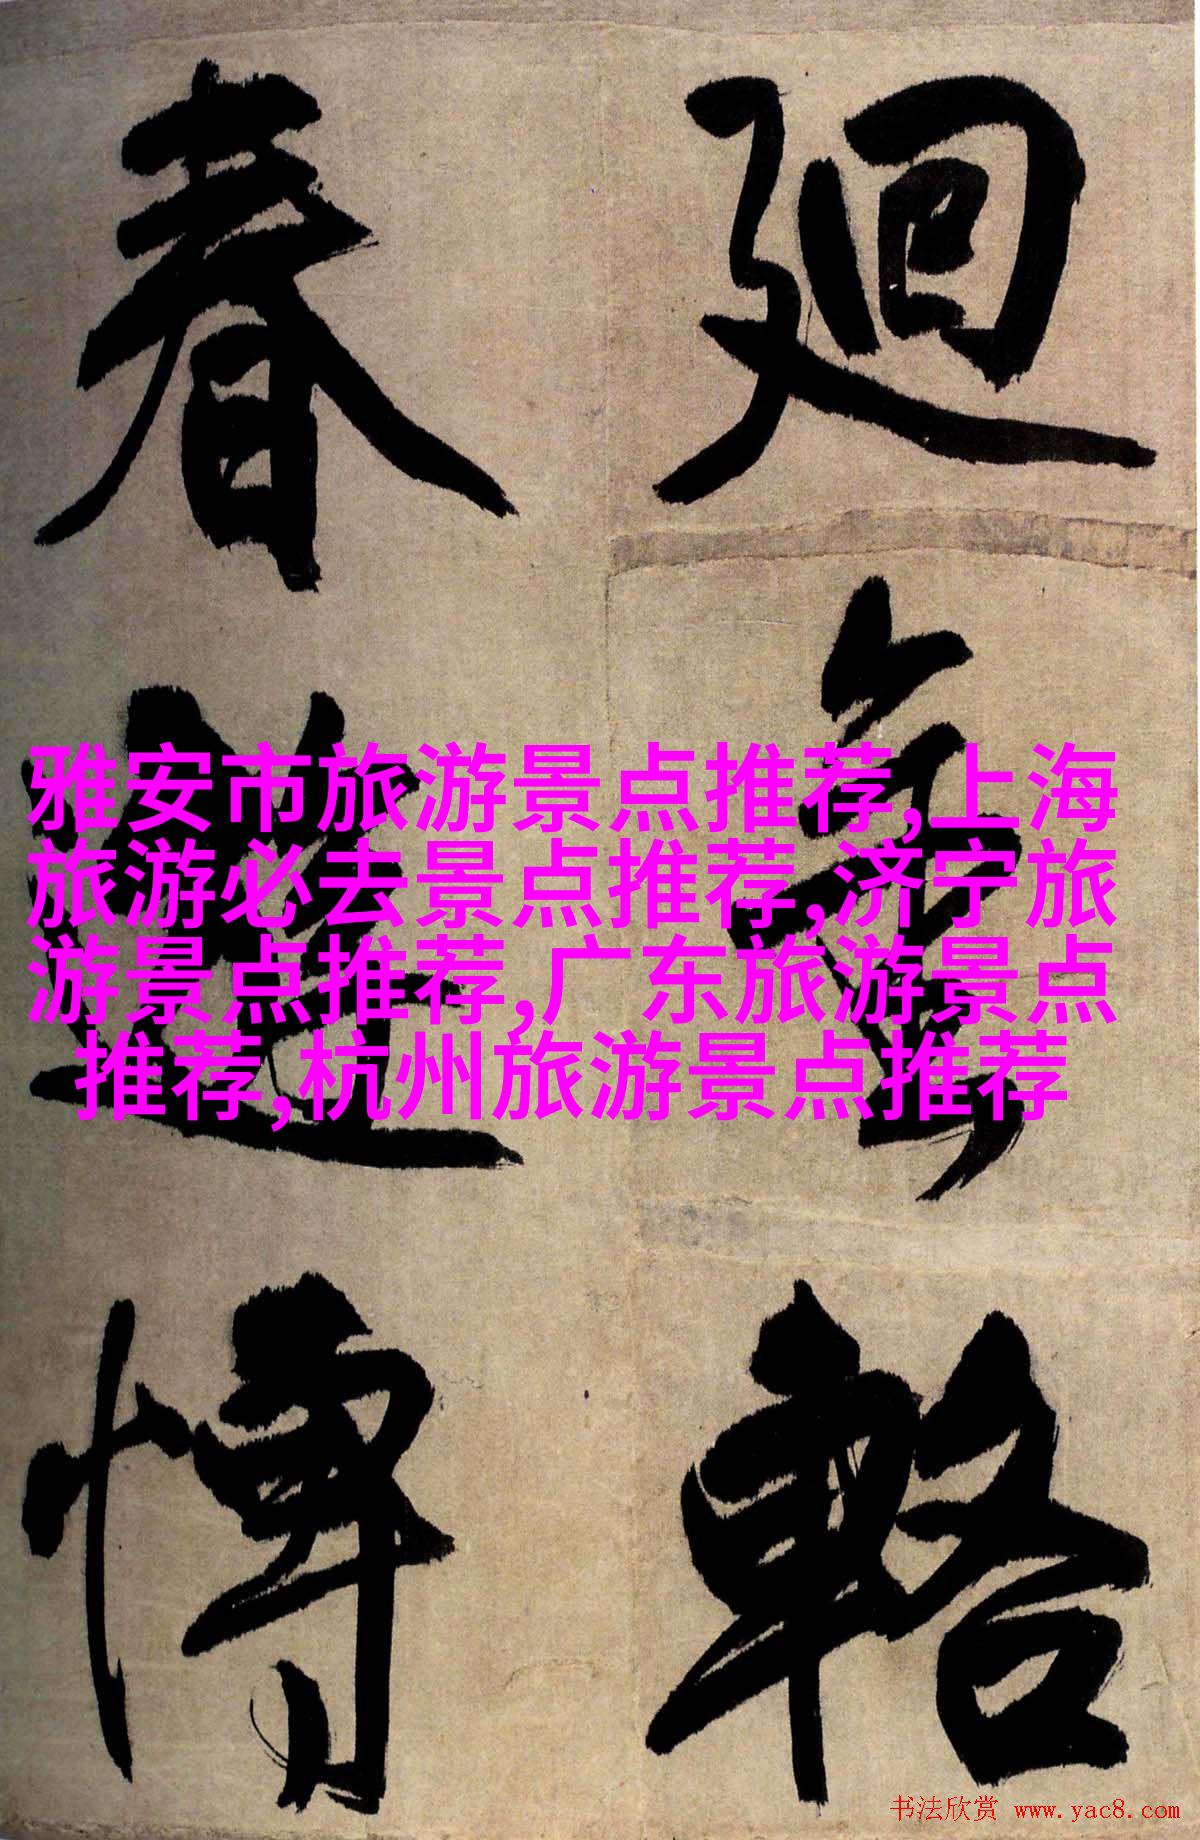 廻 輅
春 愽
雅安市旅游景点推荐,上海
旅游必去景点推荐,济宁旅
游景点推荐,广东旅游景点
推荐,杭州旅游景点推荐
书法欣赏 www.yac8.com